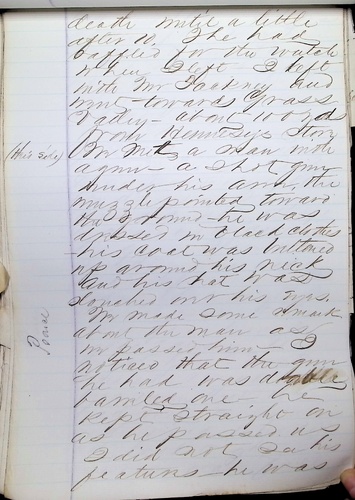 death until a little
after 10. He had
for the watch
when I left I left
with Mr and
went towards Grass
Valley - about 100 yds
from Hennessy's Store
(Hus side) We met a man with
a gun - a shot gun
under his arm, the
muzzle pointed toward
the ground - he was
dressed in black clothes
- his coat was buttoned
up around his neck
and his hat was
over his eyes.
We made some remark
about the man as
we passed him - I
noticed that the gun
he had was double
barreled one - he
kept straight on
as he passed us
I did not see his
features - he was